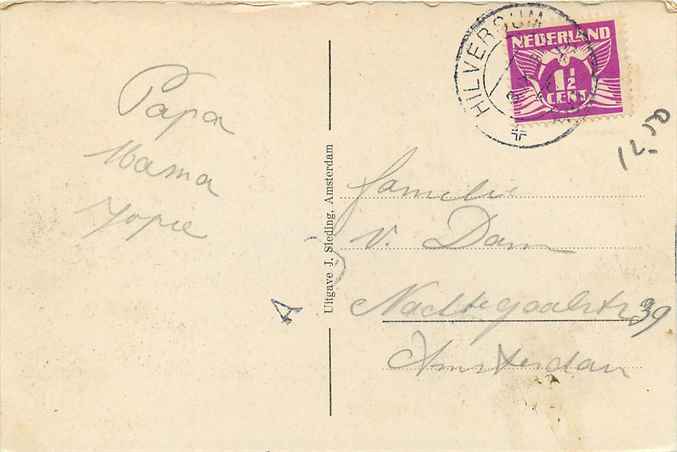 Papa
Mama
Jopie
Uitgave J. Sleding, Amsterdam
A
HILVERSUM
NEDERLAND
1½
CENT
12.50
familie
v. Dam
Nachtegaalstr 39
Amsterdam